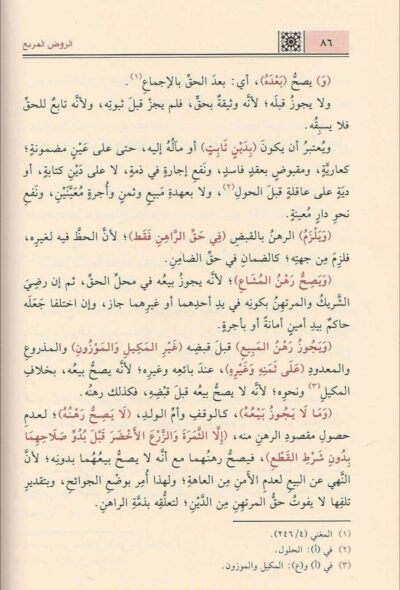 ٨٦
الروض المربع
(وَ) يصحُّ (بَعْدَهُ)، أي: بعدَ الحقِّ بالإجماعِ(١).
ولا يجوزُ قبلَه؛ لأنَّه وثيقةٌ بحقٍّ، فلم يجزْ قبلَ ثبوتِه، ولأنَّه تابعٌ للحقِّ
فلا يسبِقُه.
ويُعتبرُ أن يكونَ (بِدَيْنٍ ثَابِتٍ) أو مآلُهُ إليه، حتى على عَيْنٍ مضمونةٍ؛
كعاريَّةٍ، ومقبوضٍ بعقدٍ فاسدٍ، ونَفعِ إجارةٍ في ذمةٍ، لا على دَيْنِ كتابةٍ، أو
ديَةٍ على عاقلةٍ قبلَ الحولِ(٢)، ولا بعهدةِ مَبيعٍ وثمنٍ وأُجرةٍ مُعيَّنَيْنِ، ونَفعِ
نحوِ دارٍ مُعينةٍ.
(وَيَلْزَمُ) الرهنُ بالقبضِ (فِي حَقِّ الرَّاهِنِ فَقَط)؛ لأنَّ الحظَّ فيه لغيرِه،
فلزِمَ مِن جهتِه؛ كالضمانِ في حقِّ الضامنِ.
(وَيَصِحُّ رَهْنُ المُشَاعِ)؛ لأنَّه يجوزُ بيعُه في محلِّ الحقِّ، ثم إن رضِيَ
الشَّريكُ والمرتهِنُ بكونِه في يدِ أحدِهما أو غيرِهما جاز، وإن اختلفا جَعَلَه
حاكمٌ بيدِ أمينٍ أمانةً أو بأجرةٍ.
(وَيَجُوزُ رَهْنُ المَبِيعِ) قبلَ قبضِه (غَيْرِ المَكِيلِ وَالمَوْزُونِ) والمذروعِ
والمعدودِ (عَلَى ثَمَنِهِ وَغَيْرِهِ)، عندَ بائعِه وغيرِه؛ لأنَّه يصحُّ بيعُه، بخلافِ
المكيلِ(٣) ونحوِه؛ لأنَّه لا يصحُّ بيعُه قبلَ قبْضِه، فكذلك رهنُه.
(وَمَا لَا يَجُوزُ بَيْعُهُ)، كالوقفِ وأمِّ الولدِ، (لَا يَصِحُّ رَهْنُهُ)؛ لعدمِ
حصولِ مقصودِ الرهنِ منه، (إِلَّا الثَّمَرَةَ وَالزَّرْعَ الأَخْضَرَ قَبْلَ بُدُوِّ صَلَاحِهِمَا
بِدُونِ شَرْطِ القَطْعِ)، فيصحُّ رهنُهما مع أنَّه لا يصحُّ بيعُهُما بدونِه؛ لأنَّ
النَّهي عن البيعِ لعدمِ الأمنِ مِن العاهةِ؛ ولهذا أُمِر بوضْعِ الجوائحِ، وبتقديرِ
تلفِها لا يفوتُ حقُّ المرتهِنِ مِن الدَّيْنِ؛ لتعلُّقِه بذمَّةِ الراهنِ.
(١) المغني (٢٤٦/٤).
(٢) في (أ): الحلول.
(٣) في (أ) و(ع): المكيل والموزون.